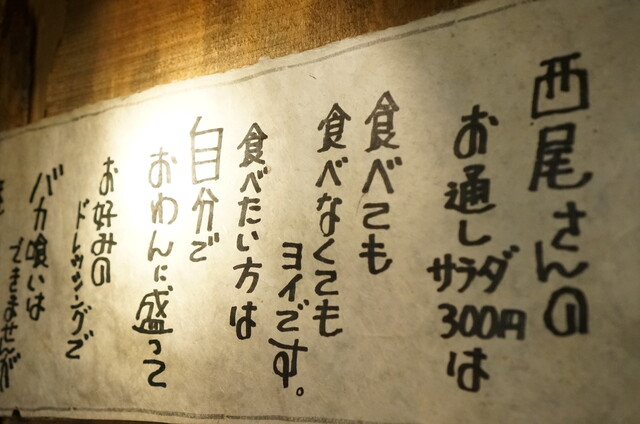 西尾さんの
お通しサラダ
300円は
食べても
食べなくても
ヨイです。
食べたい方は
自分で
おわんに盛って
お好みの
ドレッシングで
バカ喰いは
できませんが